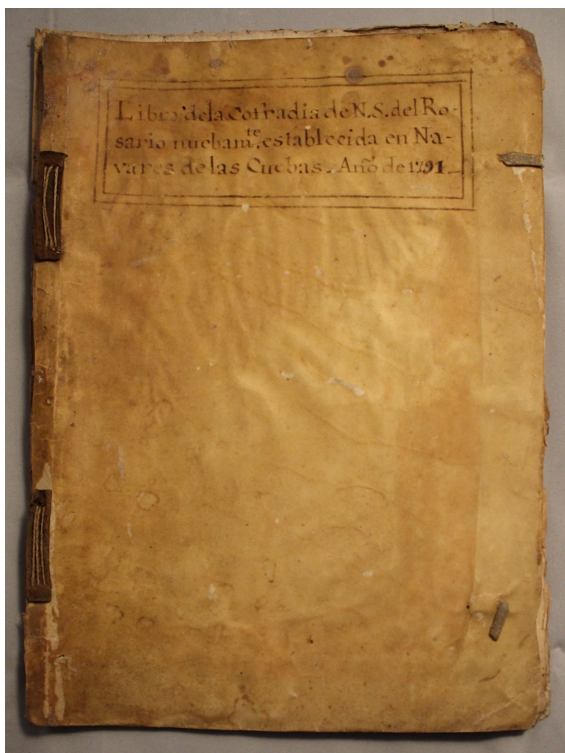 Libro dela Cofradia de N.S. del Ro-
sario nuebamte. establecida en Na-
vares de las Cuebas. Año de 1791